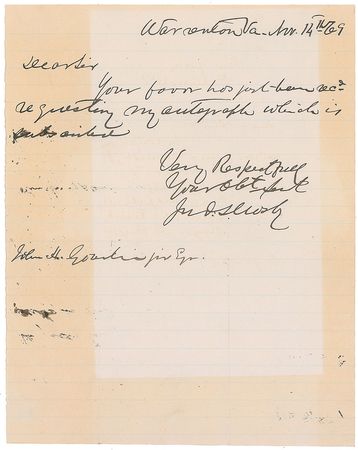 Warrenton Va. Nov. 14th/69
Dear Sir
Your favor has just been recd
requesting my autograph which is
submitted
Very Respectfully
Your Obt Svt
Jno. S. Mosby
John H. jr Esqr.